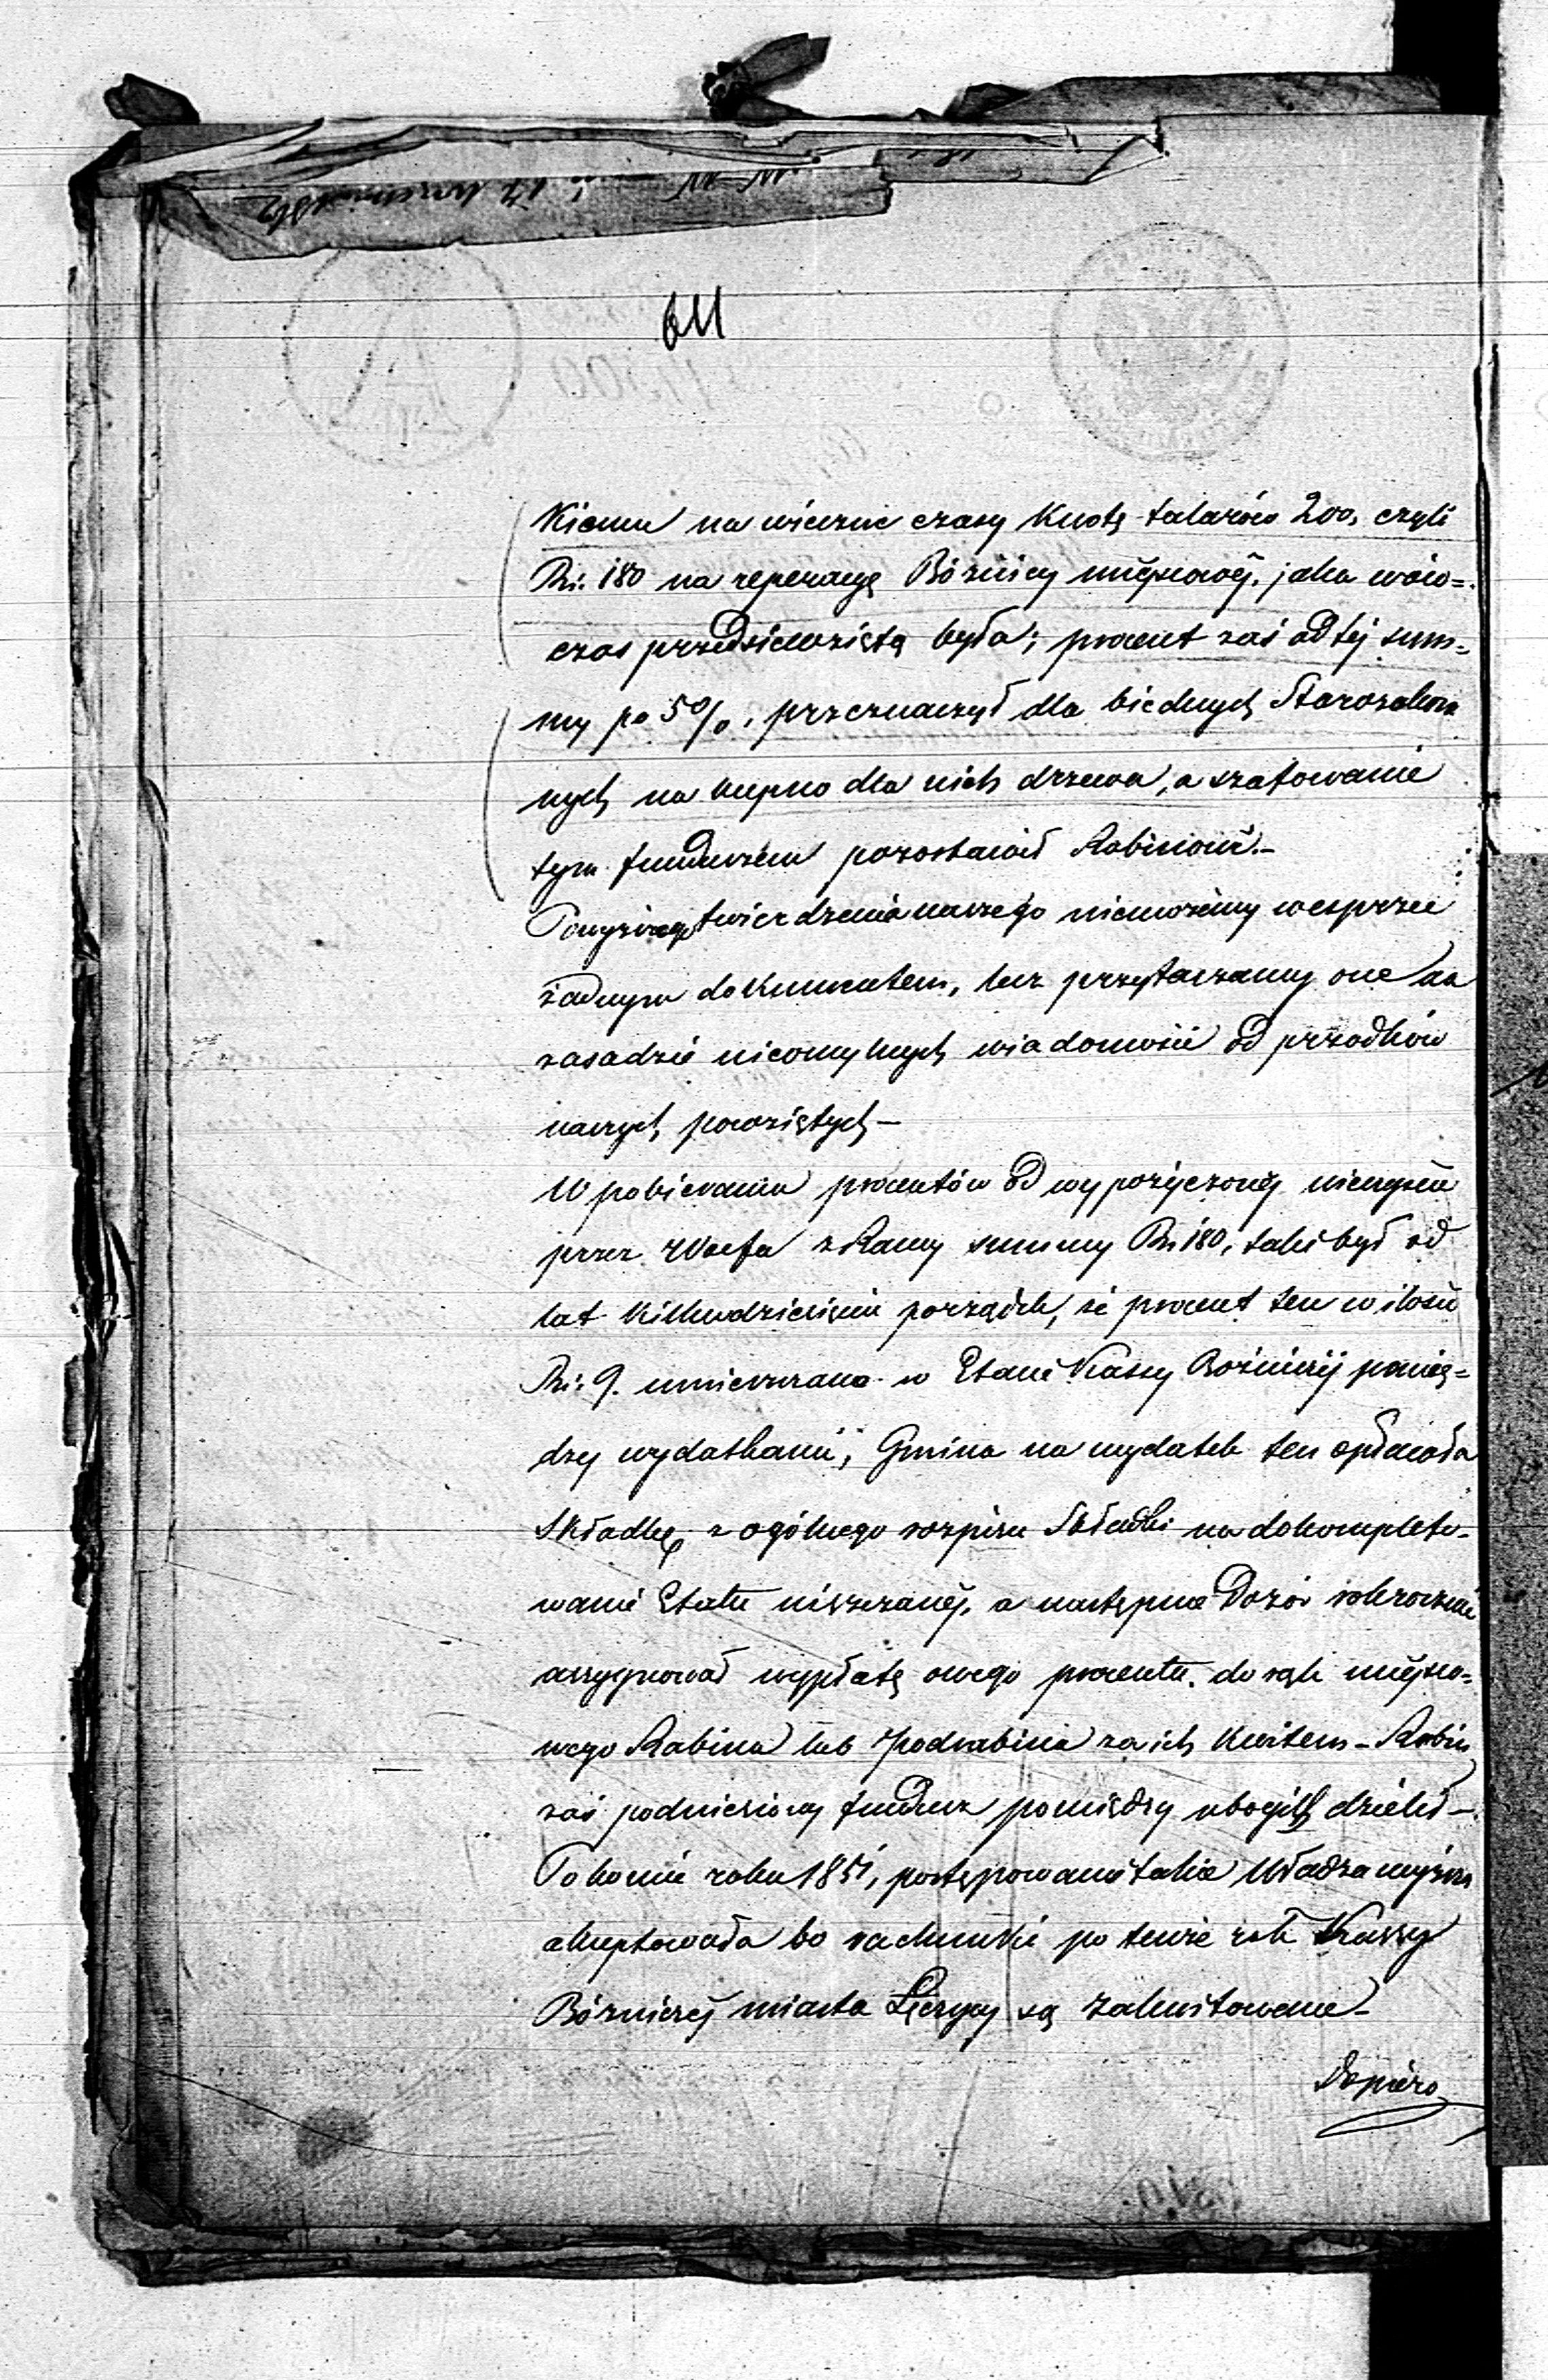 641
kiemu na wieczne czasy kwotę talarów 200, czyli
Rs: 180 na reperacyę Bóżnicy miejscowéj, jaka wów=
czas przedsiewziętą była; procent zaś od téj sum=
my po 5%, przeznaczył dla biednych Starozakon
nych na kupno dla nich drzewa, a szafowanie
tym funduszem pozostawił Rabinowi.–
Powyższego twierdzenia naszego niemożemy wesprzeć
żadnym dokumentem, lecz przytaczamy one na
zasadzie nieomylnych wiadomości od przodków
naszych powziętych –
W pobieraniu procentów od wypożyczonéj
przez Wolfa summy Rs 180, taki był od
lat kilkudziesięciu porządek, że procent ten w ilości
Rs: 9. umieszczano w Etacie Kassy Bóżniczéj pomię=
dzy wydatkami; Gmina na wydatek ten opłacała
składkę z ogólnego rozpisu Składki na dokompleto-
wanie Etatu uiszczanéj, a następnie Dozór
assygnował wypłatę owego procentu do rąk miejsco-
wego Rabina lub Podrabina za ich kwitem – Rabin
zaś podniesiony fundusz pomiędzy ubogich dzielił –
Po koniec roku 1851, postępowanie takie Władza wyższa
akceptowała bo rachunki po tenże rok Kassy
Bóżniczéj miasta Łęczycy są zakwitowane –
Dopiéro